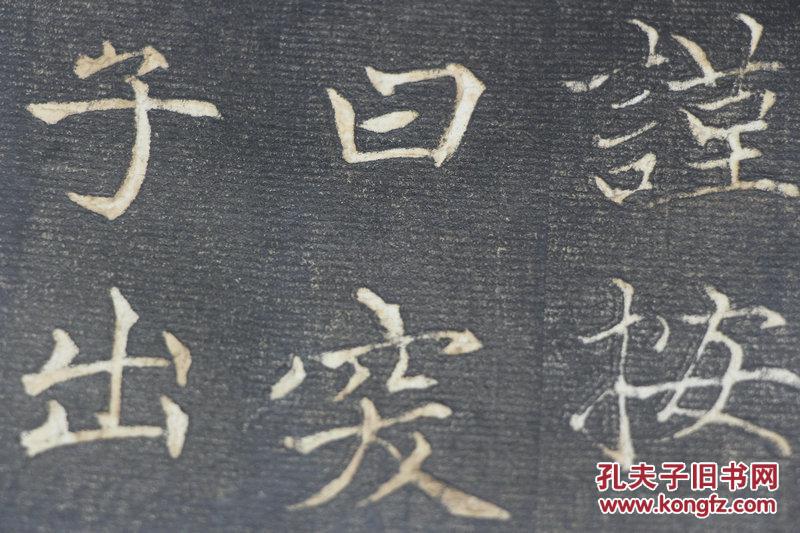 謹按
曰突
子出
孔夫子旧书网
www.kongfz.com